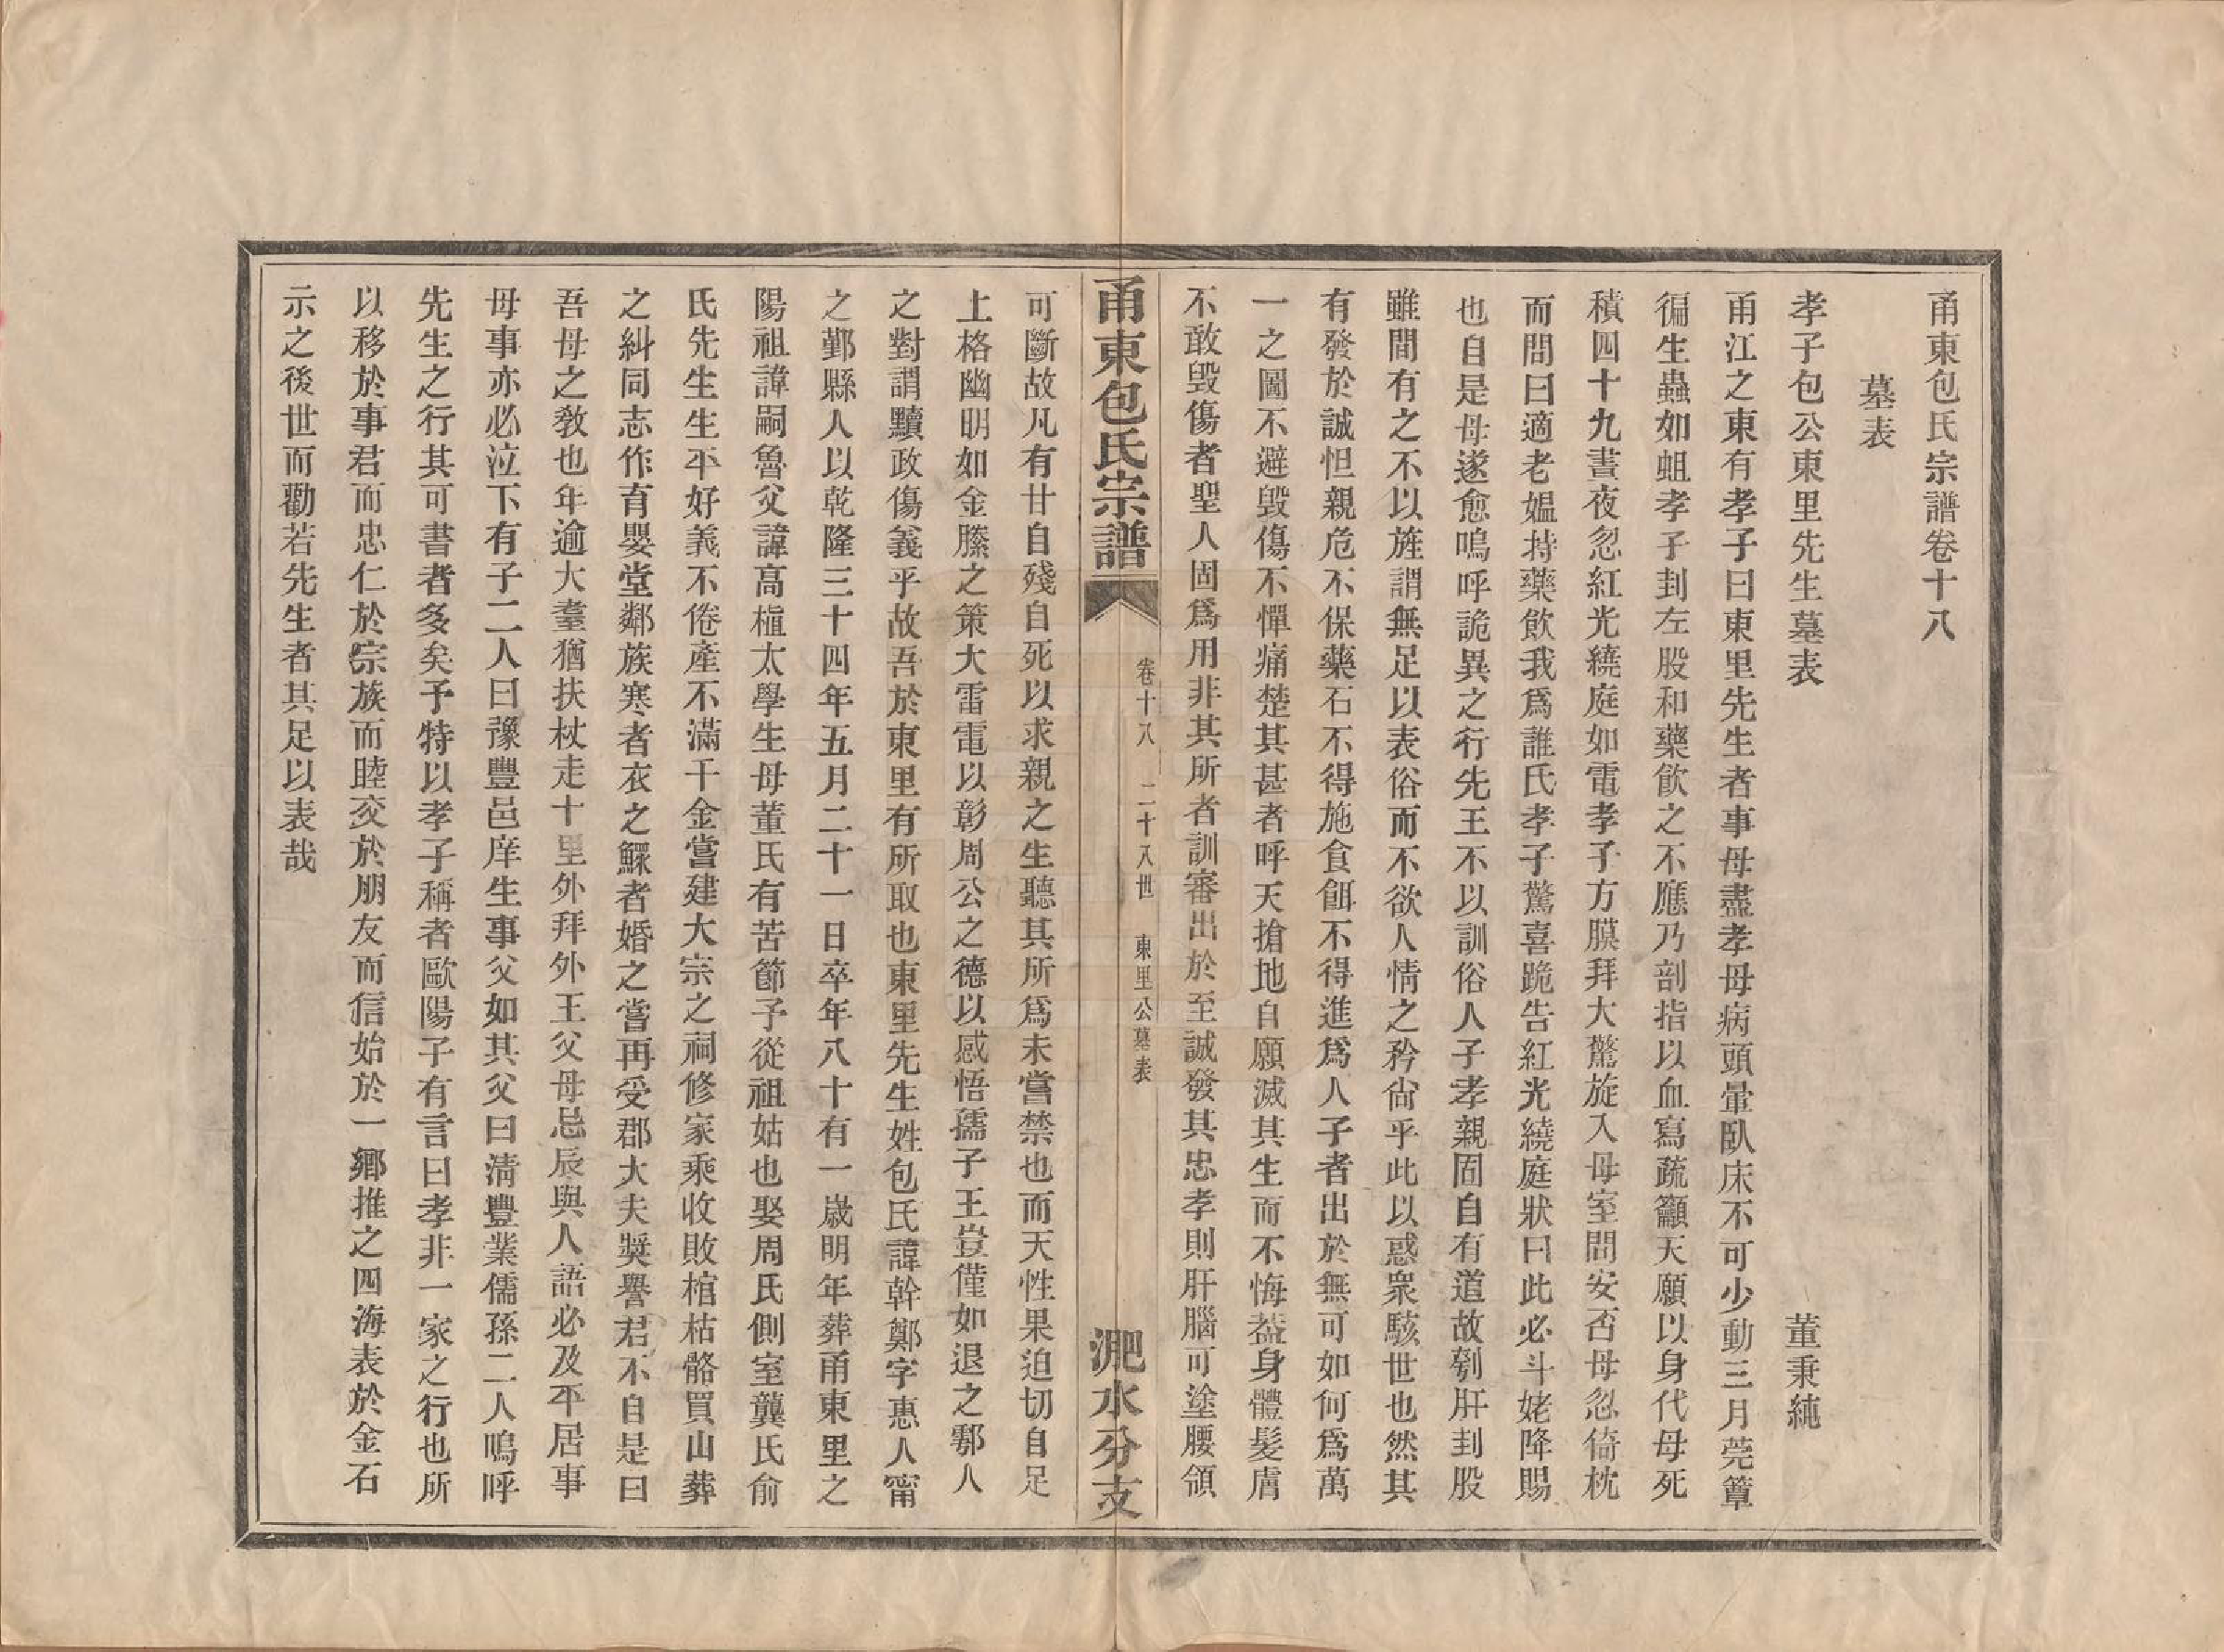 甬東包氏宗譜卷十八
墓表
孝子包公東里先生墓表
董秉純
甬江之東有孝子曰東里先生者事母盡孝母病頭暈臥床不可少動三月莞簟
徧生蟲如蛆孝子刲左股和藥飲之不應乃剖指以血寫疏籲天願以身代母死
積四十九晝夜忽紅光繞庭如電孝子方膜拜大驚旋入母室問安否母忽倚枕
而問曰適老媼持藥飲我爲誰氏孝子驚喜跪告紅光繞庭狀曰此必斗姥降賜
也自是母遂愈嗚呼詭異之行先王不以訓俗人子孝親固自有道故刳肝刲股
雖間有之不以旌謂無足以表俗而不欲人情之矜尙乎此以惑衆駭世也然其
有發於誠怛親危不保藥石不得施食餌不得進爲人子者出於無可如何爲萬
一之圖不避毀傷不憚痛楚其甚者呼天搶地自願滅其生而不悔葢身體髮膚
不敢毀傷者聖人固爲用非其所者訓審出於至誠發其忠孝則肝腦可塗腰領
甬東包氏宗譜
卷十八
二十八世
東里公墓表
淝水分支
可斷故凡有甘自殘自死以求親之生聽其所爲未嘗禁也而天性果迫切自足
上格幽明如金縢之策大雷電以彰周公之德以感悟孺子王豈僅如退之鄠人
之對謂黷政傷義乎故吾於東里有所取也東里先生姓包氏諱幹鄭字惠人甯
之鄞縣人以乾隆三十四年五月二十一日卒年八十有一歲明年葬甬東里之
陽祖諱嗣魯父諱高樞太學生母董氏有苦節予從祖姑也娶周氏側室龔氏俞
氏先生生平好義不倦產不滿千金嘗建大宗之祠修家乘收敗棺枯骼買山葬
之糾同志作育嬰堂鄰族寒者衣之鰥者婚之嘗再受郡大夫獎譽君不自是曰
吾母之敎也年逾大耋猶扶杖走十里外拜外王父母忌辰與人語必及平居事
母事亦必泣下有子二人曰豫豐邑庠生事父如其父曰淸豐業儒孫二人嗚呼
先生之行其可書者多矣予特以孝子稱者歐陽子有言曰孝非一家之行也所
以移於事君而忠仁於宗族而睦交於朋友而信始於一鄉推之四海表於金石
示之後世而勸若先生者其足以表哉